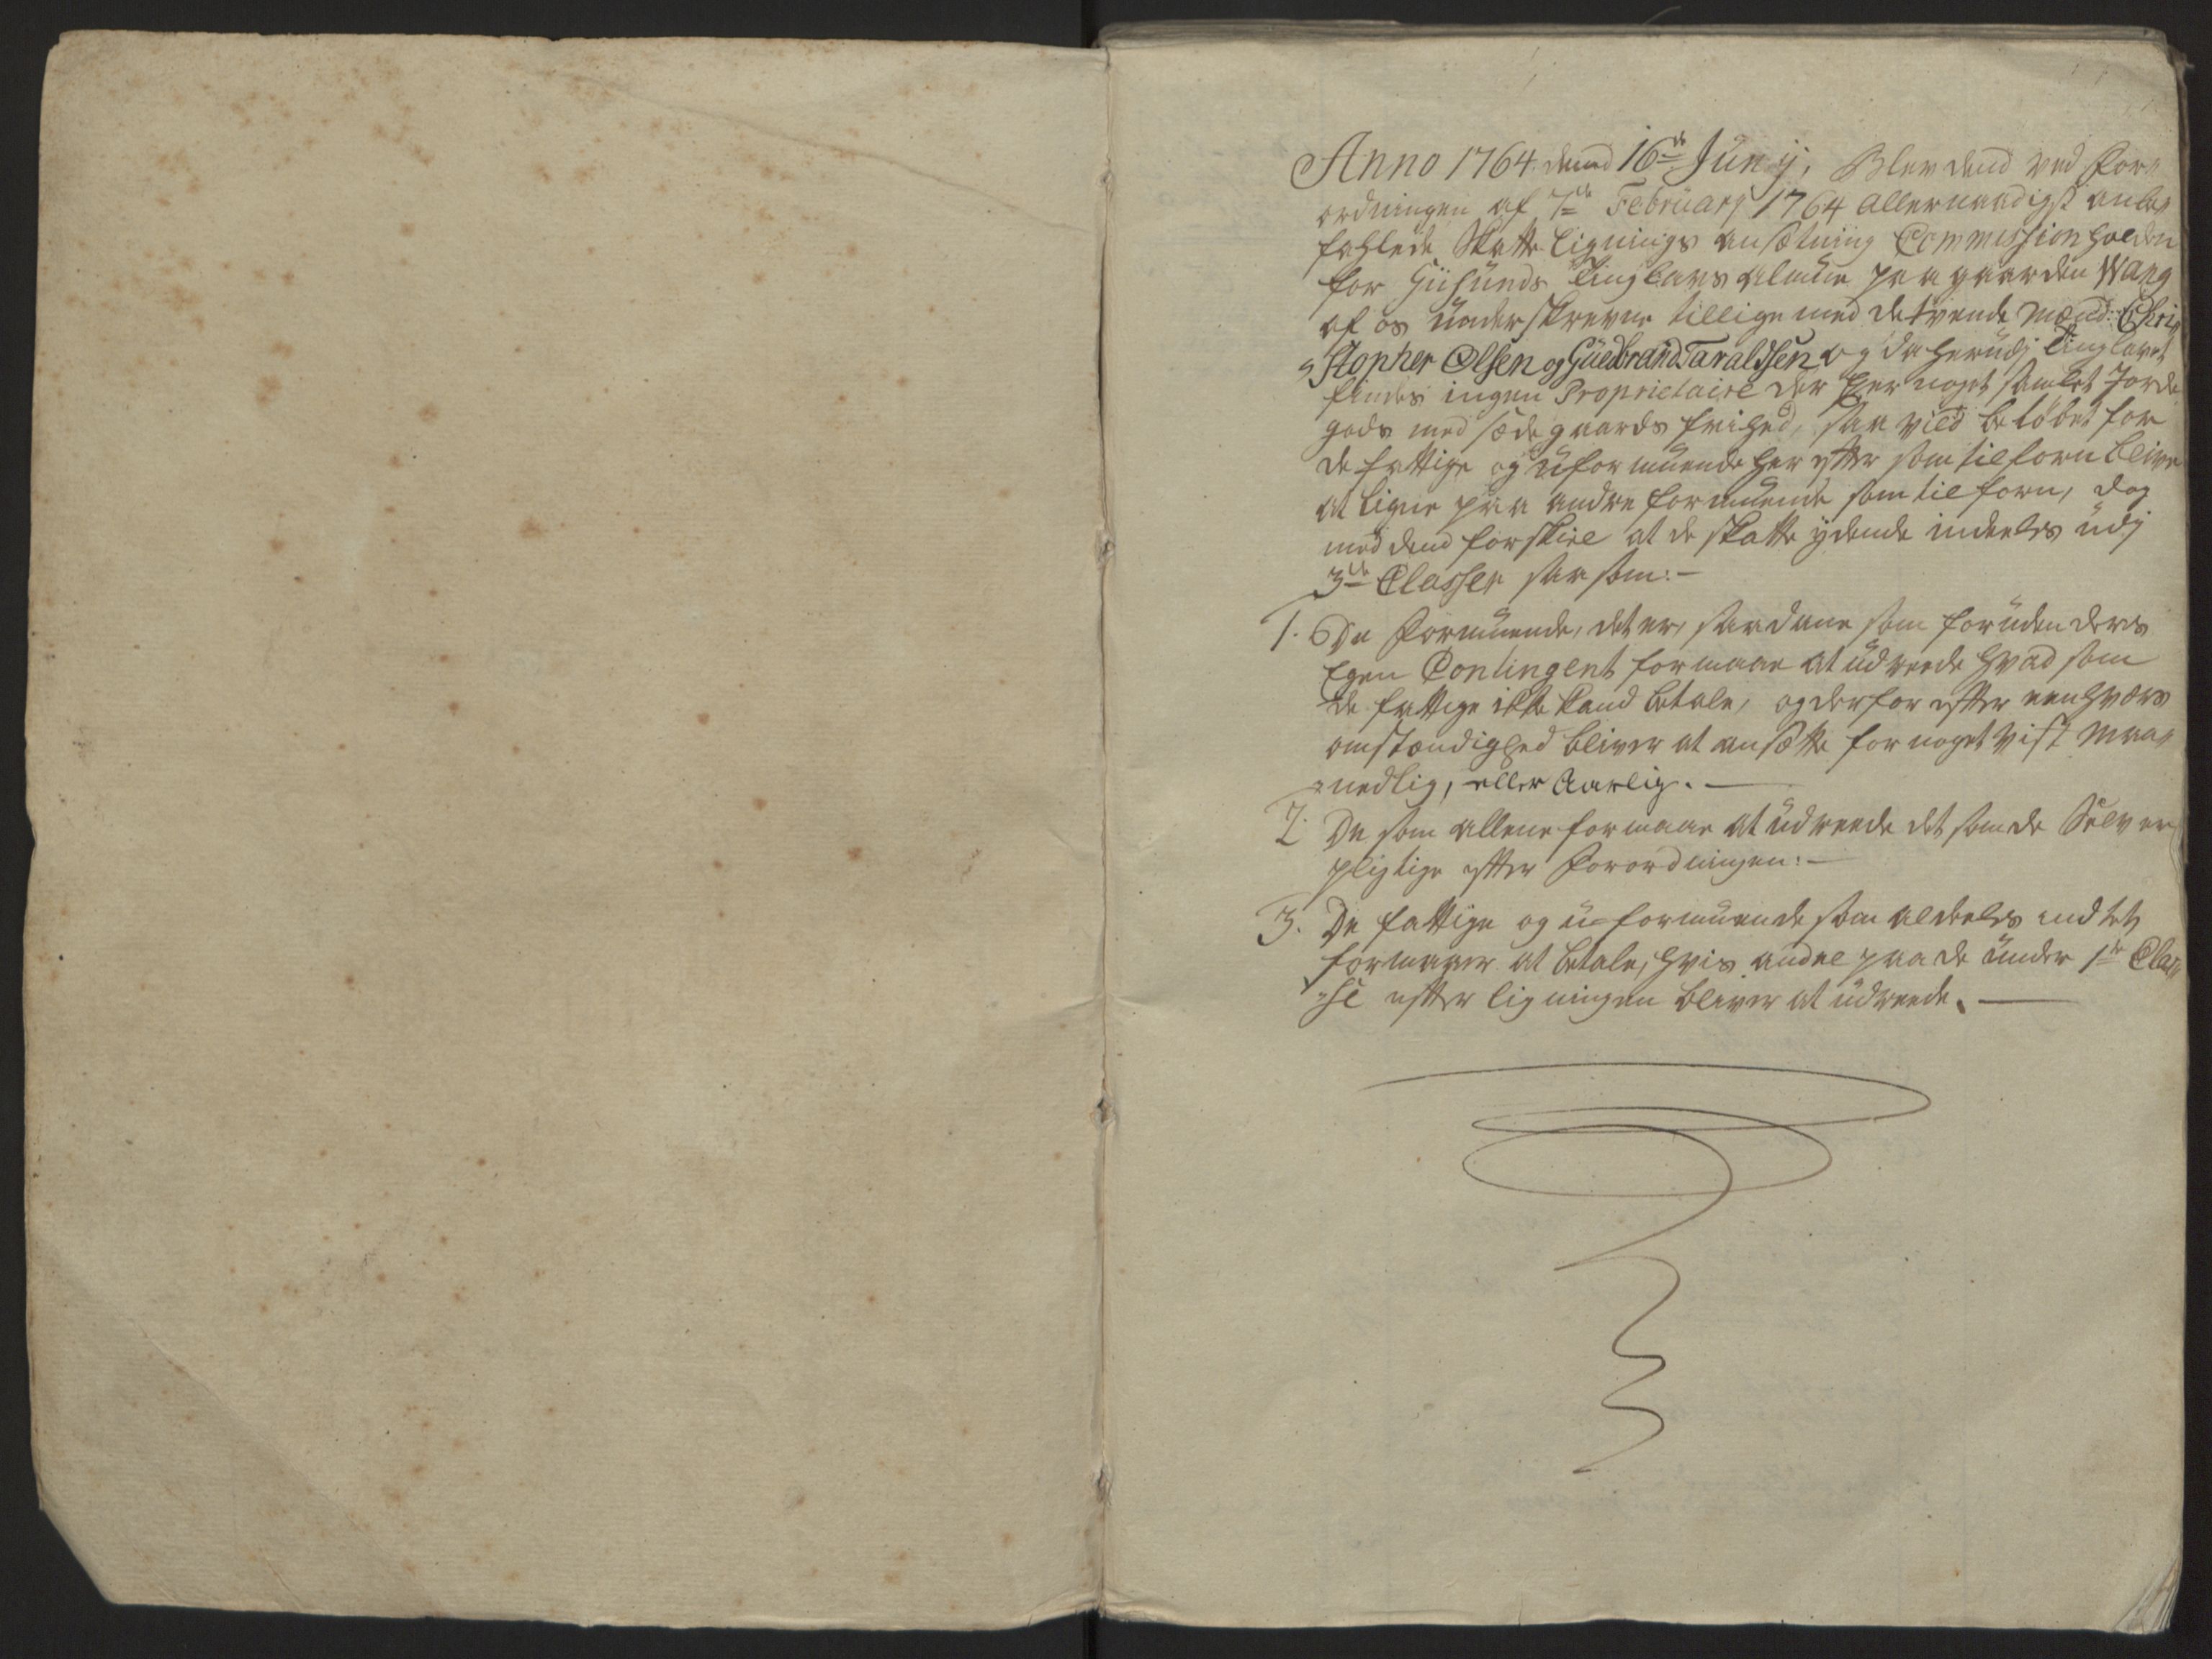 Anno 1764 dend 16de Junij, Blev dend ved For¬
ordningen af 7de February 1764 allernaadigst anbe¬
fahlede Skatte Lignings ansætning Commission holden
for Giisunds Tinglaus almue paa gaarden Wang
af os underskrevne tillige med de tvende Mænd: Chri¬
stopher Olsen og Guedbrand Taraldsen og da herudj Tinglavet
findes ingen Proprietaire der Eyer noget samlet Jorde
gods med sædegaards frihed, saa vild beløbet for
de fattige og uformuende her efter som tilforn blive
at ligne paa andre formuende som tilforn, dog
med dend forskiel at de skatte ydende indeeles udj
3de Classer saasom:-
1. De Formuende, det er, saadane som foruden deres
Egen Contingent formaae at udreede hvad som
de fattige ikke kand betale, og derfor efter eenhvers
omstændighed bliver at ansætte for noget vist maa¬
nedlig, eller Aarlig.
2. De som allene formaae at udreede det som de Selv er
pligtige efter Forordningen:-
3. De fattige og u-formuende som aldeeles indtet
formaaer at betale, hvis andel paa de under 1te Clas¬
se efter ligningen bliver at udreede.